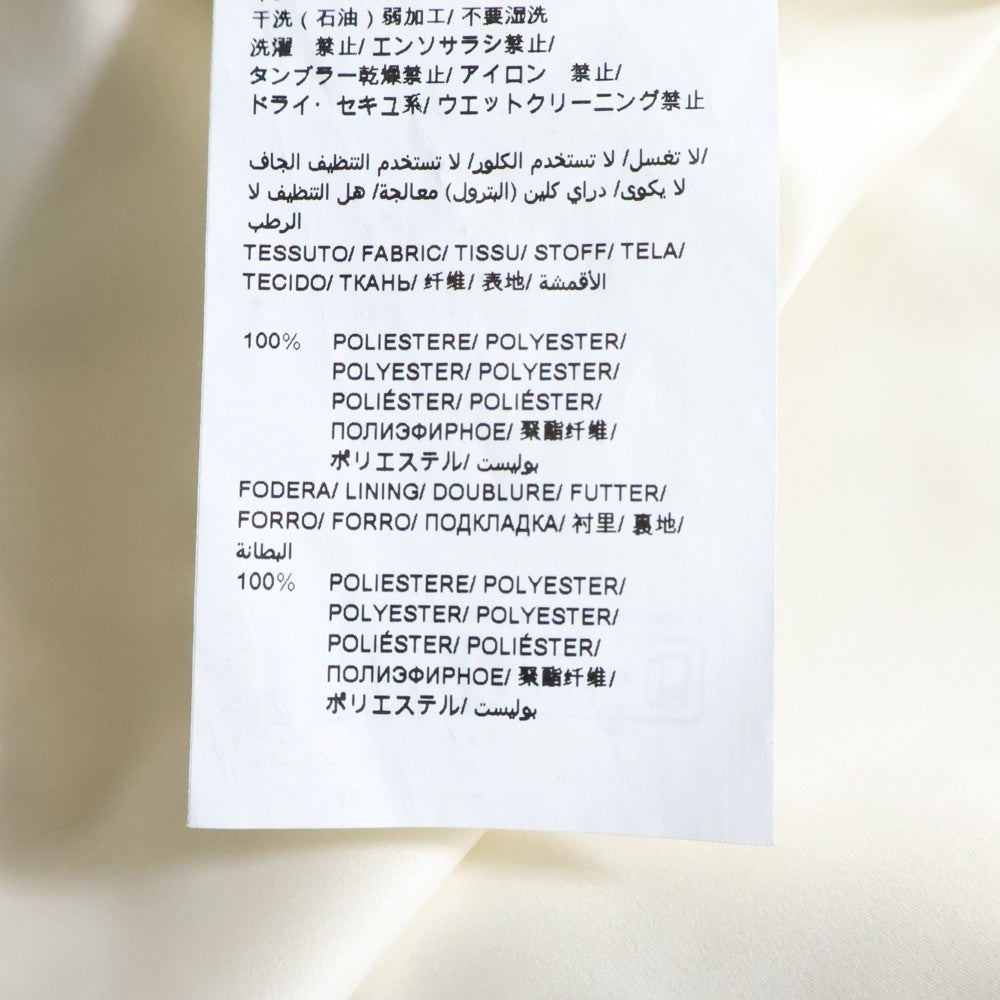 干洗 ( 石油 ) 弱加工/ 不要湿洗
洗濯　禁止/ エンソサラシ禁止/
タンブラー乾燥禁止/ アイロン　禁止/
ドライ・ セキユ系/ ウエットクリーニング禁止
/لا تغسل/ لا تستخدم الكلور/ لا تستخدم التنظيف الجاف
لا يكوى/ دراي كلين (البترول) معالجة/ هل التنظيف لا
الرطب
TESSUTO/ FABRIC/ TISSU/ STOFF/ TELA/
TECIDO/ ТКАНЬ/ 纤维/ 表地/ الأقمشة
100% POLIESTERE/ POLYESTER/
POLYESTER/ POLYESTER/
POLIÉSTER/ POLIÉSTER/
ПОЛИЭФИРНОЕ/ 聚酯纤维/
ポリエステル/ بوليست
FODERA/ LINING/ DOUBLURE/ FUTTER/
FORRO/ FORRO/ ПОДКЛАДКА/ 衬里/ 裏地/
البطانة
100% POLIESTERE/ POLYESTER/
POLYESTER/ POLYESTER/
POLIÉSTER/ POLIÉSTER/
ПОЛИЭФИРНОЕ/ 聚酯纤维/
ポリエステル/ بوليست